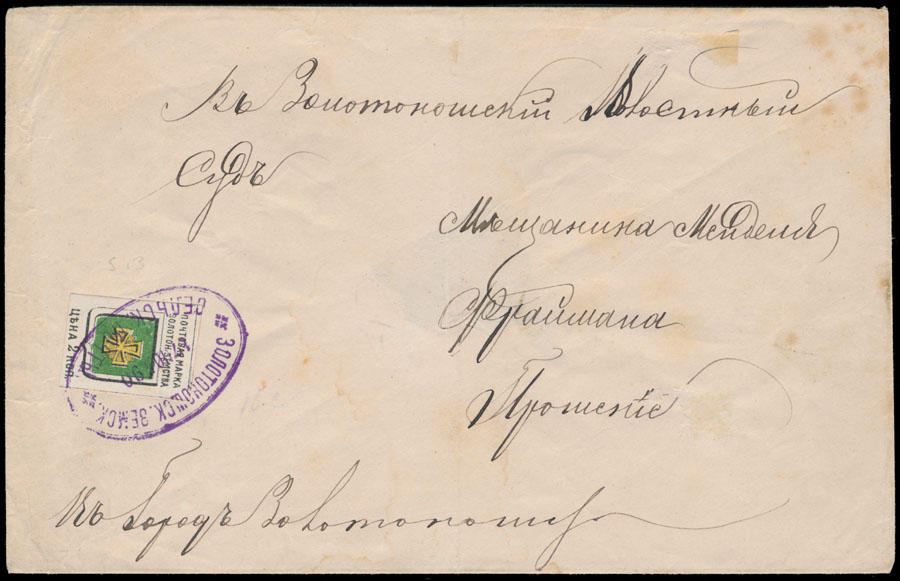 Въ Золотоношскій
Судъ
Мѣщанина Менделя
Фраймана
Прошеніе
Въ Городъ Золотоношу
ПОЧТОВАЯ МАРКА
ЗОЛОТОН. ЗЕМСТВА
ЦѢНА 2 КОП.
ЗОЛОТОНОШСК. ЗЕМСК.
S 13